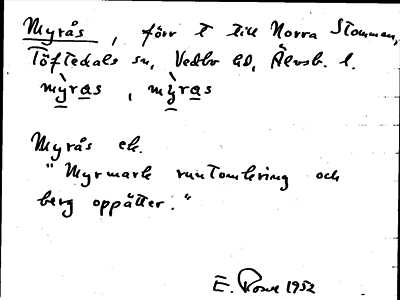 Myrås, förr t till Norra Stommen,
Töftedals sn, Vedbo hd, Älvsb. l.
mỳras, mỳras
Myrås ek.
"Myrmark runtomkring och
berg oppätter."
E. Rosn 1952